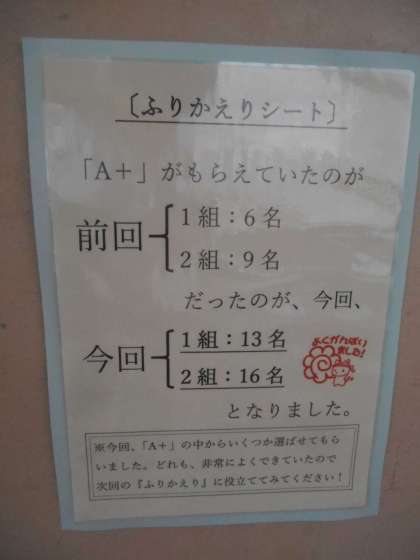 〔ふりかえりシート〕
「A＋」がもらえていたのが
前回
1組：6名
2組：9名
だったのが、今回、
今回
1組：13名
2組：16名
よくがんばりました!
となりました。
※今回、「A＋」の中からいくつか選ばせてもら
いました。どれも、非常によくできていたので
次回の『ふりかえり』に役立ててみてください！